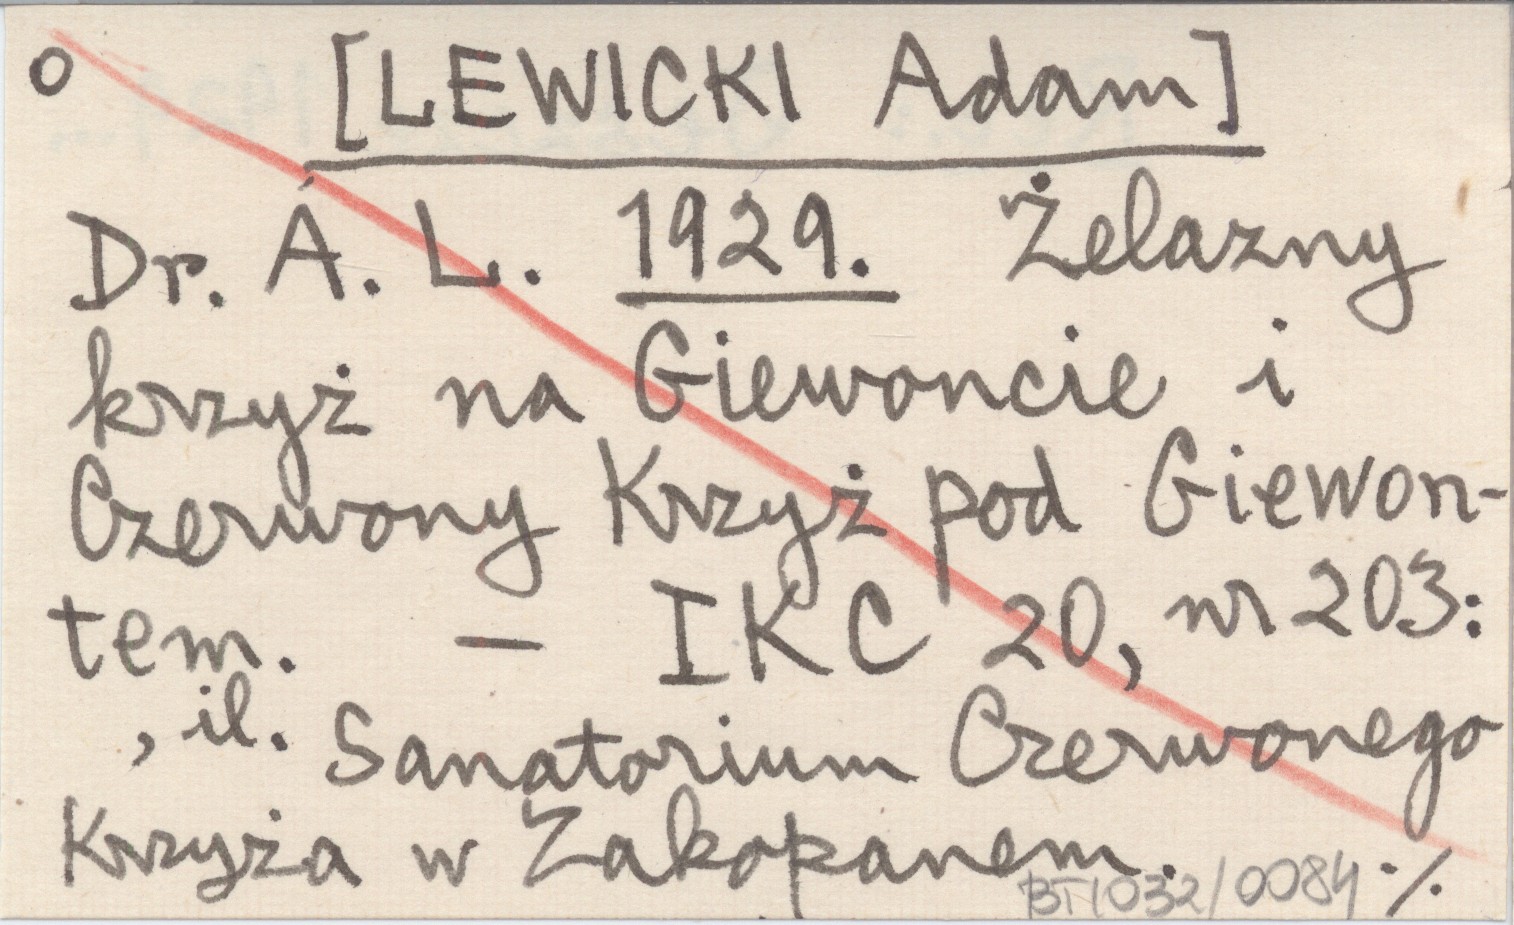 o [LEWICKI Adam]
Dr. A. L. 1929. Żelazny
krzyż na Giewoncie i
Czerwony Krzyż pod Giewon-
tem. — IKC 20, nr 203:
, il. Sanatorium Czerwonego
Krzyża w Zakopanem.
BT1032/0084 ./.